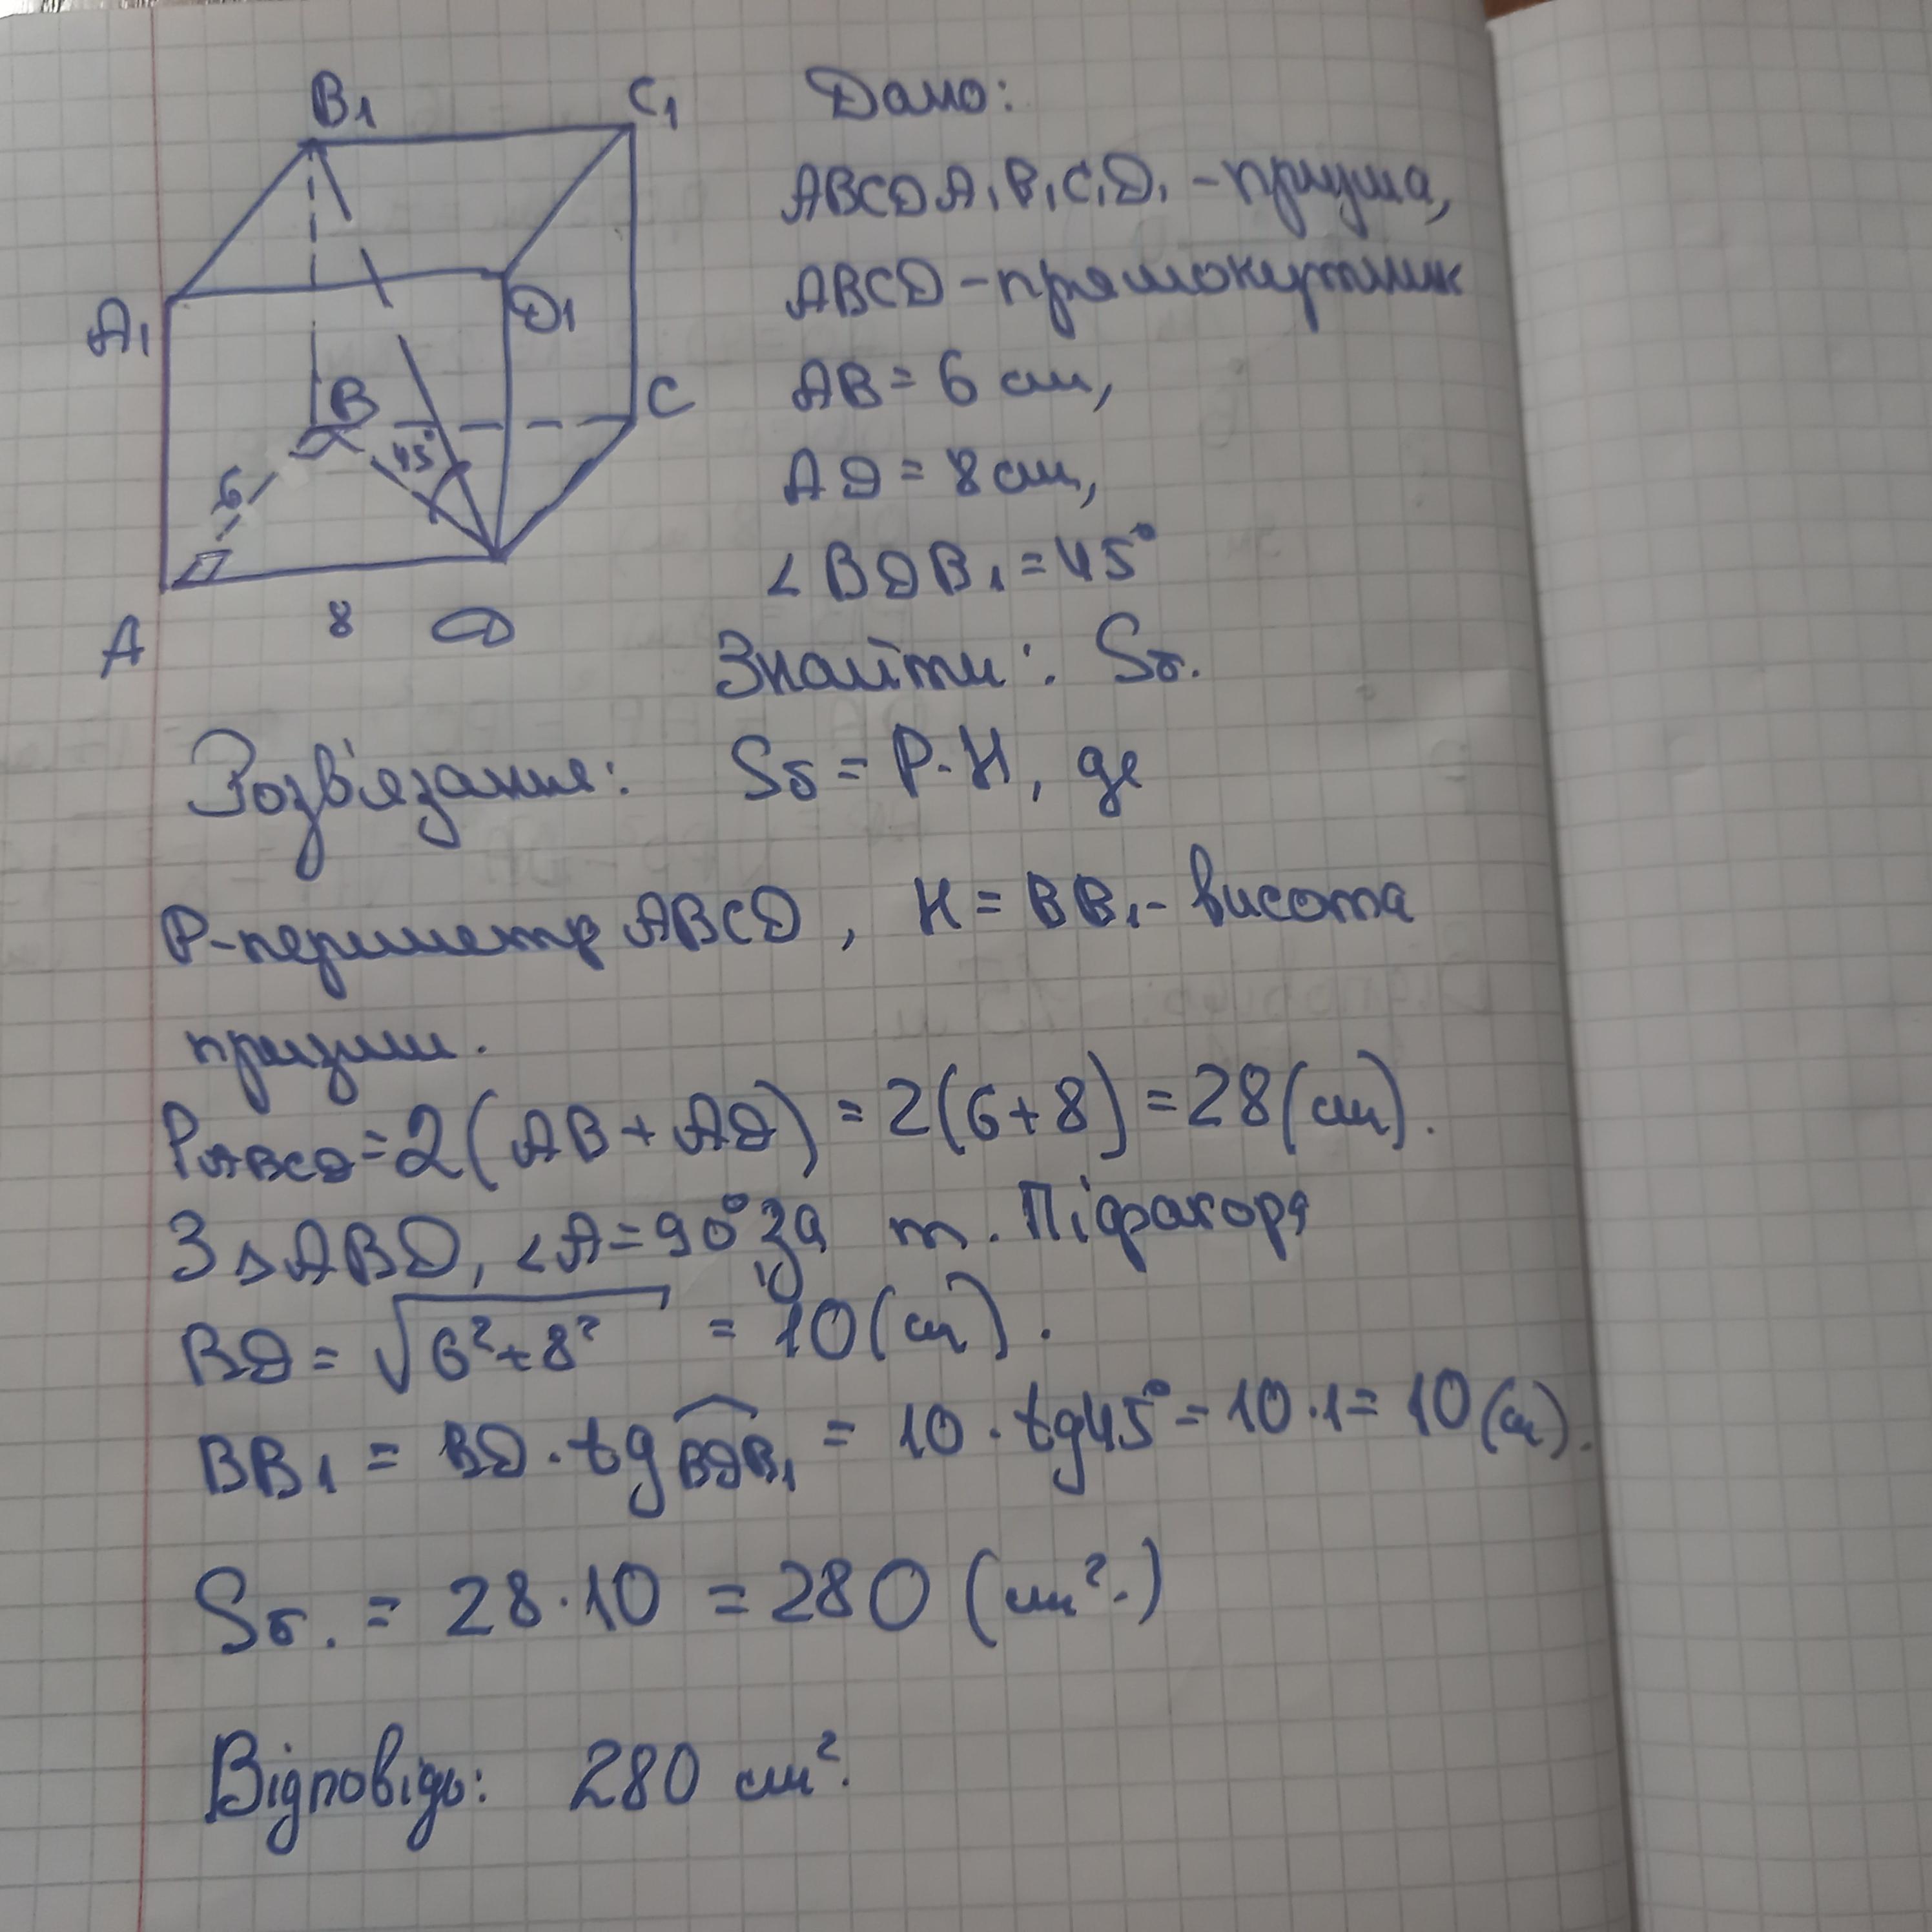 B₁ C₁
A₁ D₁
B C
45°
6
A 8 D
Дано:
ABCDA₁B₁C₁D₁ - призма,
ABCD - прямокутник
AB = 6 см,
AD = 8 см,
∠BDB₁ = 45°
Знайти: Sб.
Розв'язання: Sб = P·H, де
P-периметр ABCD, H = BB₁ - висота
призми.
P_ABCD = 2(AB + AD) = 2(6+8) = 28(см).
З △ABD, ∠A = 90° за т. Піфагора
BD = √(6²+8²) = 10(см).
BB₁ = BD · tg BDB₁ = 10 · tg45° = 10·1 = 10(см).
Sб. = 28·10 = 280 (см².)
Відповідь: 280 см².